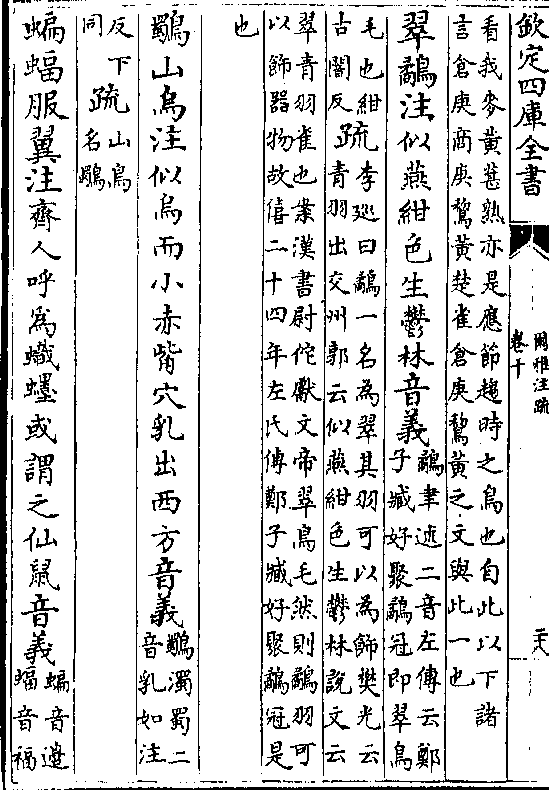 欽定四庫全書
爾雅注疏
卷十
看我麥黃葚熟亦是應節趨時之鳥也自此以下諸
言倉庚商庚鵹黃楚雀倉庚鵹黃之文與此一也
翠鷸注似燕紺色生鬱林音義
鷸聿述二音左傳云鄭
子臧好聚鷸冠即翠鳥
毛也紺
古闇反
疏
李廵曰鷸一名為翠其羽可以為飾樊光云
青羽出交州郭云似燕紺色生鬱林說文云
翠青羽雀也案漢書尉佗獻文帝翠鳥毛然則鷸羽可
以飾器物故僖二十四年左氏傳鄭子臧好聚鷸冠是
也
鸀山烏注似烏而小赤觜穴乳出西方音義
鸀濁蜀二
音乳如注
反下
同
疏
山烏
名鸀
蝙蝠服翼注齊人呼為蟙䘃或謂之仙鼠音義
蝙音邊
蝠音福